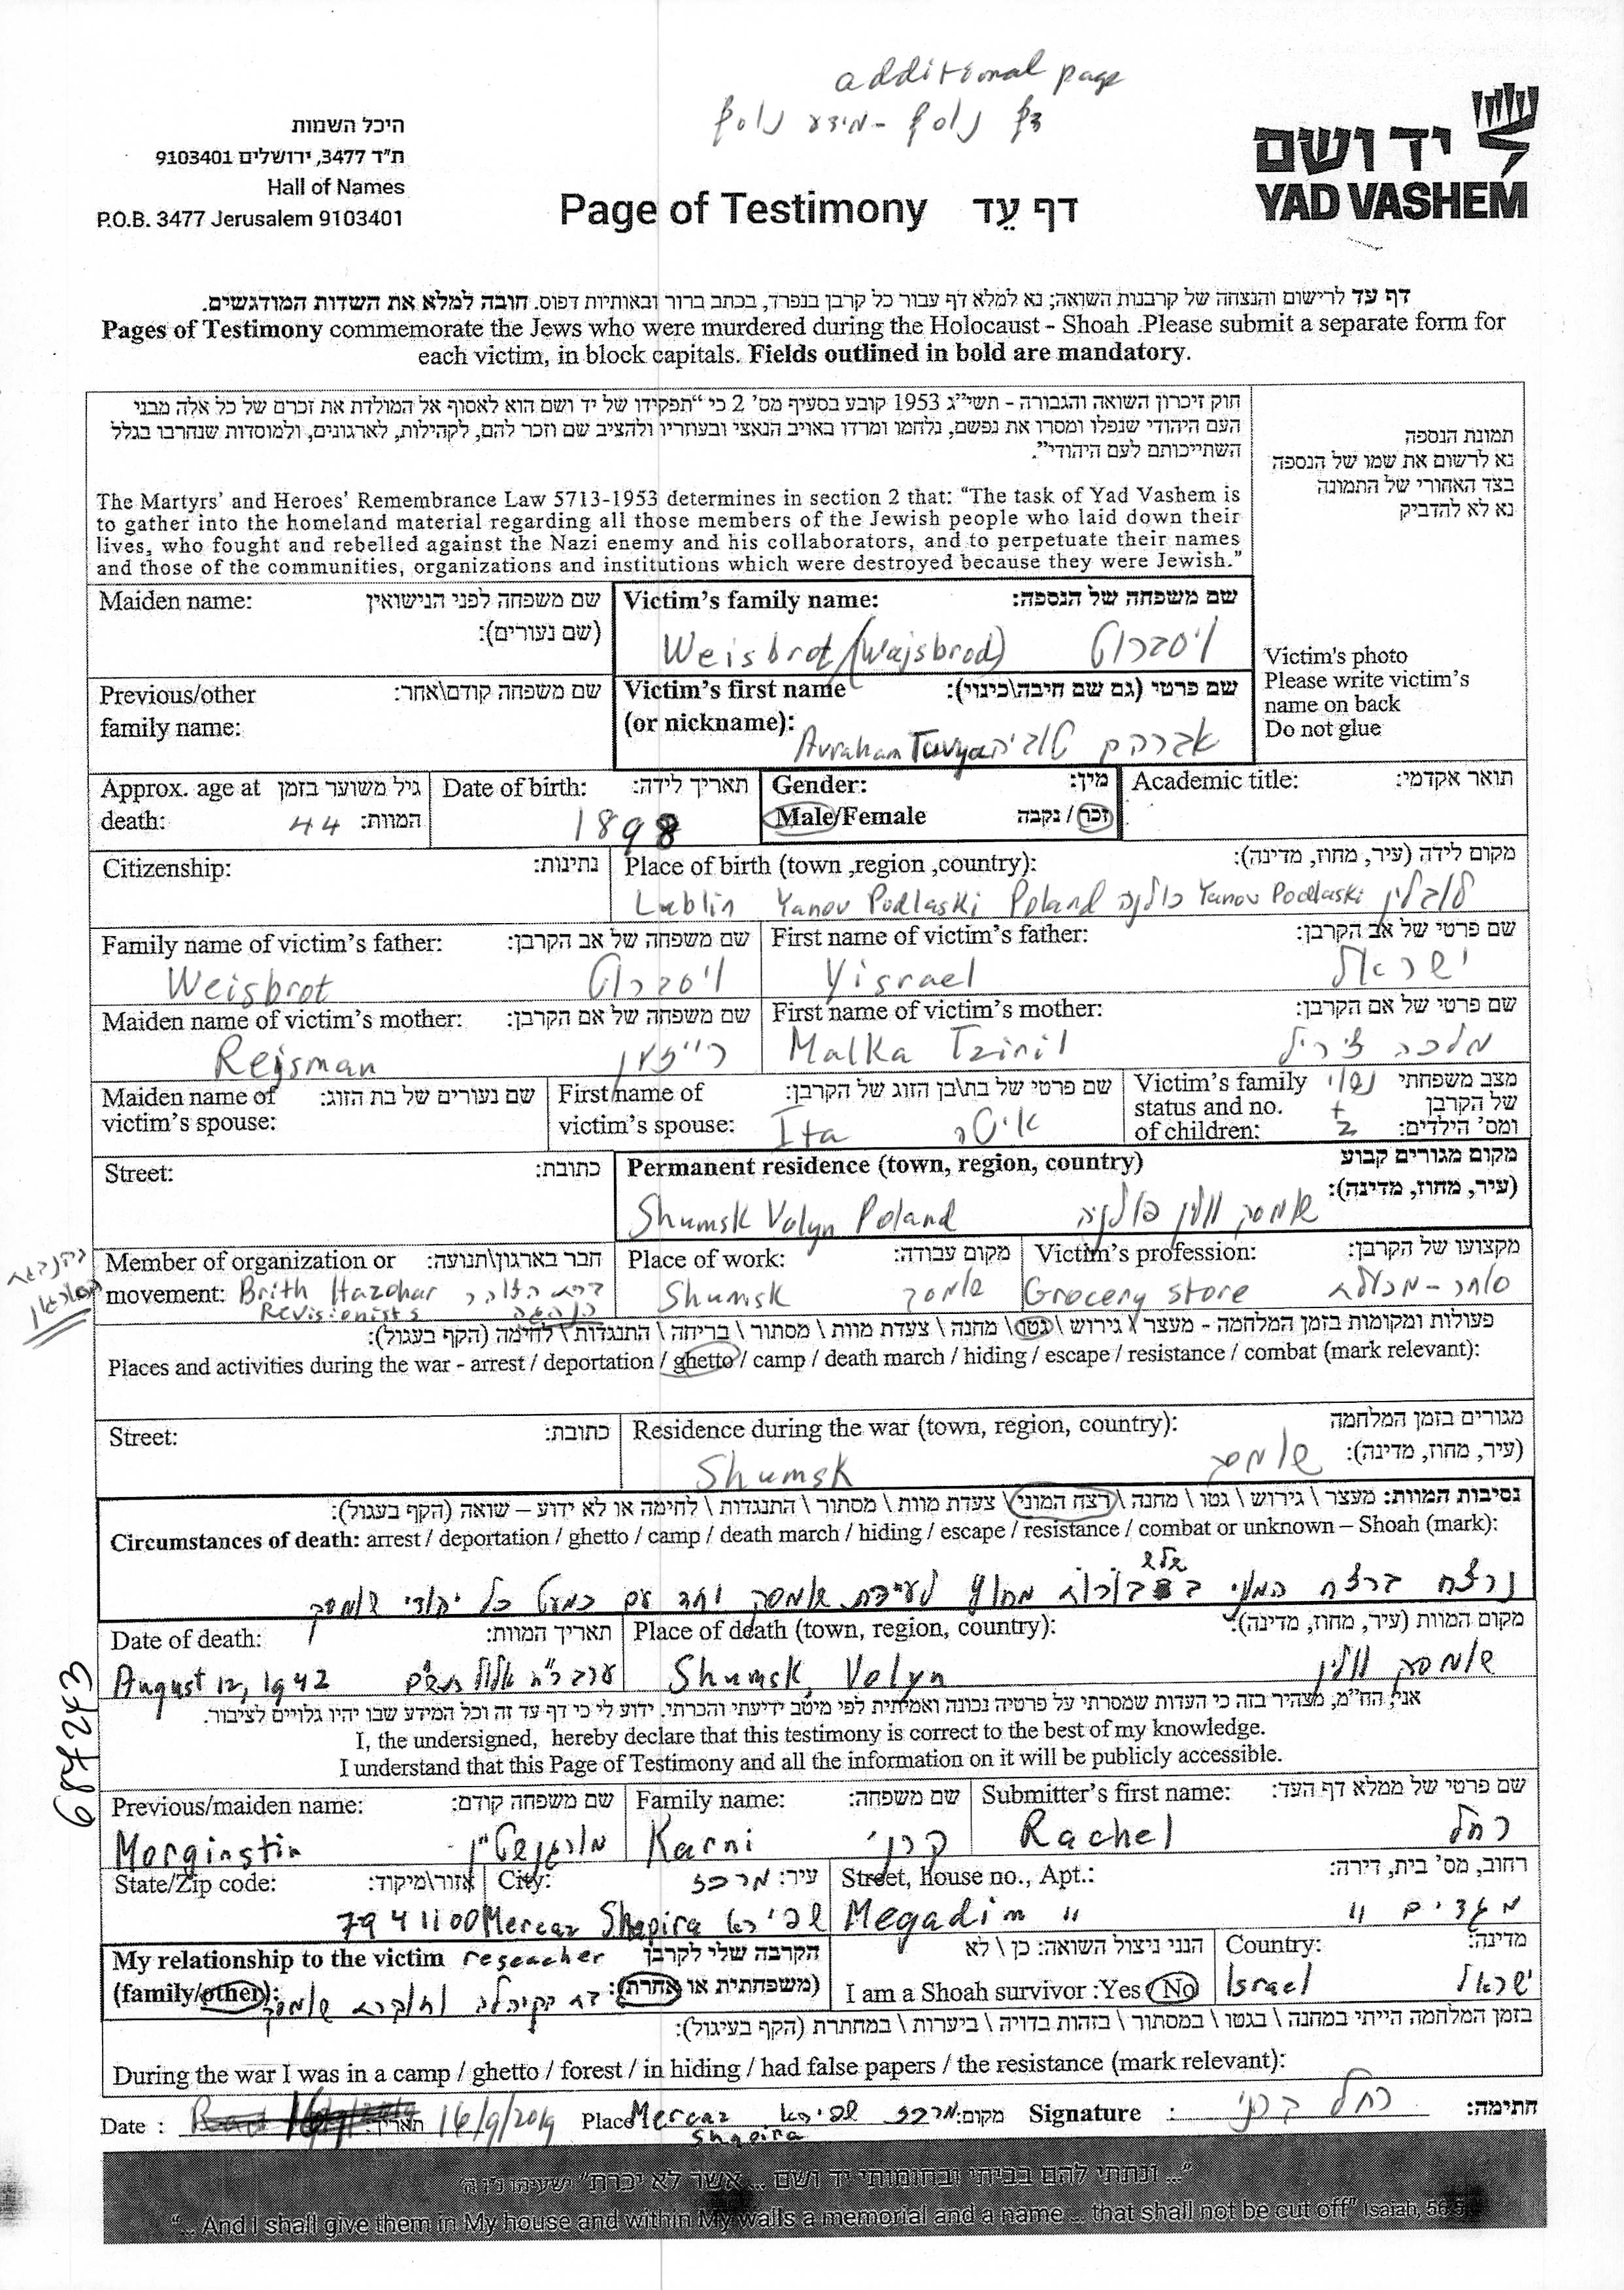 additional page
דף נוסף - מידע נוסף
היכל השמות
ת"ד 3477, ירושלים 9103401
Hall of Names
P.O.B. 3477 Jerusalem 9103401
Page of Testimony דף עֵד
יד ושם
YAD VASHEM
דף עד לרישום והנצחה של קרבנות השואה; נא למלא דף עבור כל קרבן בנפרד, בכתב ברור ובאותיות דפוס. חובה למלא את השדות המודגשים.
Pages of Testimony commemorate the Jews who were murdered during the Holocaust - Shoah .Please submit a separate form for
each victim, in block capitals. Fields outlined in bold are mandatory.
חוק זיכרון השואה והגבורה - תשי"ג 1953 קובע בסעיף מס' 2 כי "תפקידו של יד ושם הוא לאסוף אל המולדת את זכרם של כל אלה מבני
העם היהודי שנפלו ומסרו את נפשם, נלחמו ומרדו באויב הנאצי ובעוזריו ולהציב שם וזכר להם, לקהילות, לארגונים, ולמוסדות שנחרבו בגלל
השתייכותם לעם היהודי".
The Martyrs' and Heroes' Remembrance Law 5713-1953 determines in section 2 that: "The task of Yad Vashem is
to gather into the homeland material regarding all those members of the Jewish people who laid down their
lives, who fought and rebelled against the Nazi enemy and his collaborators, and to perpetuate their names
and those of the communities, organizations and institutions which were destroyed because they were Jewish."
תמונת הנספה
נא לרשום את שמו של הנספה
בצד האחורי של התמונה
נא לא להדביק
Victim's photo
Please write victim's
name on back
Do not glue
Maiden name: שם משפחה לפני הנישואין
(שם נעורים):
Victim's family name: שם משפחה של הנספה:
Weisbrot (Wajsbrod) ויסברוט
Previous/other שם משפחה קודם\אחר:
family name:
Victim's first name שם פרטי (גם שם חיבה\כינוי):
(or nickname):
Avraham Tuvya אברהם טוביה
Approx. age at גיל משוער בזמן
death: 44 המוות:
Date of birth: תאריך לידה:
1898
Gender: מין:
Male/Female זכר / נקבה
Academic title: תואר אקדמי:
Citizenship: נתינות:
Place of birth (town ,region ,country): מקום לידה (עיר, מחוז, מדינה):
Lublin Yanov Podlaski Poland פולניה Yanov Podlaski לובלין
Family name of victim's father: שם משפחה של אב הקרבן:
Weisbrot ויסברוט
First name of victim's father: שם פרטי של אב הקרבן:
Yisrael ישראל
Maiden name of victim's mother: שם משפחה של אם הקרבן:
Rejsman רייזמן
First name of victim's mother: שם פרטי של אם הקרבן:
Malka Tziril מלכה ציריל
Maiden name of שם נעורים של בת הזוג:
victim's spouse:
First name of שם פרטי של בת\בן הזוג של הקרבן:
victim's spouse: Ita איטה
Victim's family נשוי מצב משפחתי
status and no. + של הקרבן
of children: 2 ומס' הילדים:
Street: כתובת:
Permanent residence (town, region, country) מקום מגורים קבוע
(עיר, מחוז, מדינה):
Shumsk Volyn Poland שומסק ווולין פולניה
Member of organization or חבר בארגון\תנועה:
movement: Brith Hazohar ברית הצוהר
Revisionists
Place of work: מקום עבודה:
Shumsk שומסק
Victim's profession: מקצועו של הקרבן:
Grocery store סוחר - מכולת
פעולות ומקומות בזמן המלחמה - מעצר \ גירוש \ גטו \ מחנה \ צעדת מוות \ מסתור \ בריחה \ התנגדות \ לחימה (הקף בעגול):
Places and activities during the war - arrest / deportation / ghetto / camp / death march / hiding / escape / resistance / combat (mark relevant):
Street: כתובת:
Residence during the war (town, region, country): מגורים בזמן המלחמה
(עיר, מחוז, מדינה):
Shumsk שומסק
נסיבות המוות: מעצר \ גירוש \ גטו \ מחנה \ רצח המוני \ צעדת מוות \ מסתור \ התנגדות \ לחימה או לא ידוע – שואה (הקף בעגול):
Circumstances of death: arrest / deportation / ghetto / camp / death march / hiding / escape / resistance / combat or unknown – Shoah (mark):
שלש
נרצח ברצח המוני בבורות מחוץ לעיירת שומסק יחד עם כמעט כל יהודי שומסק
Date of death: תאריך המוות:
August 12, 1942 ערב ר"ח אלול תש"ב
Place of death (town, region, country): מקום המוות (עיר, מחוז, מדינה):
Shumsk, Volyn שומסק ווולין
687243
אני, הח"מ, מצהיר בזה כי העדות שמסרתי על פרטיה נכונה ואמיתית לפי מיטב ידיעתי והכרתי. ידוע לי כי דף עד זה וכל המידע שבו יהיו גלויים לציבור.
I, the undersigned, hereby declare that this testimony is correct to the best of my knowledge.
I understand that this Page of Testimony and all the information on it will be publicly accessible.
Previous/maiden name: שם משפחה קודם:
Morginstin מורגנשטיין
Family name: שם משפחה:
Karni קרני
Submitter's first name: שם פרטי של ממלא דף העד:
Rachel רחל
State/Zip code: אזור\מיקוד:
7941100
City: עיר: מרכז
Mercaz Shapira שפירא
Street, house no., Apt.: רחוב, מס' בית, דירה:
Megadim 11 מגדים 11
My relationship to the victim reseacher הקרבה שלי לקרבן
(family/other): (משפחתית או אחרת):
I am a Shoah survivor :Yes /No הנני ניצול השואה: כן \ לא
Country: מדינה:
Israel ישראל
בזמן המלחמה הייתי במחנה \ בגטו \ במסתור \ בזהות בדויה \ ביערות \ במחתרת (הקף בעיגול):
During the war I was in a camp / ghetto / forest / in hiding / had false papers / the resistance (mark relevant):
Date : תאריך: 16/9/2019 Place Mercaz Shapira מקום: מרכז שפירא Signature : רחל קרני חתימה:
"... ונתתי להם בביתי ובחומותי יד ושם ... אשר לא יכרת" ישעיהו נ"ו ה'
"... And I shall give them in My house and within My walls a memorial and a name ... that shall not be cut off" Isaiah, 56:5